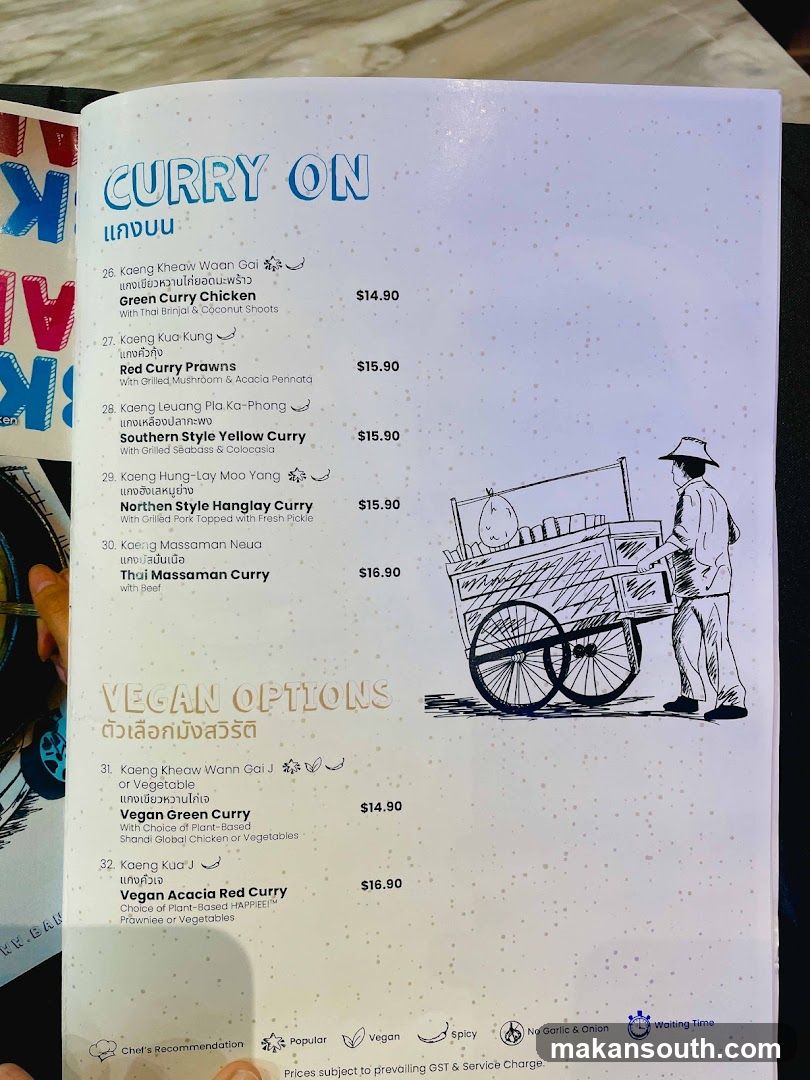 CURRY ON
แกงบน
26. Kaeng Kheaw Waan Gai
แกงเขียวหวานไก่ยอดมะพร้าว
Green Curry Chicken $14.90
With Thai Brinjal & Coconut Shoots
27. Kaeng Kua Kung
แกงคั่วกุ้ง
Red Curry Prawns $15.90
With Grilled Mushroom & Acacia Pennata
28. Kaeng Leuang Pla Ka-Phong
แกงเหลืองปลากะพง
Southern Style Yellow Curry $15.90
With Grilled Seabass & Colocasia
29. Kaeng Hung-Lay Moo Yang
แกงฮังเลหมูย่าง
Northen Style Hanglay Curry $15.90
With Grilled Pork Topped with Fresh Pickle
30. Kaeng Massaman Neua
แกงมัสมั่นเนื้อ
Thai Massaman Curry $16.90
with Beef
VEGAN OPTIONS
ตัวเลือกมังสวิรัติ
31. Kaeng Kheaw Wann Gai J
or Vegetable
แกงเขียวหวานไก่เจ
Vegan Green Curry $14.90
With Choice of Plant-Based
Shandi Global Chicken or Vegetables
32. Kaeng Kua J
แกงคั่วเจ
Vegan Acacia Red Curry $16.90
Choice of Plant-Based HAPPIEE!™
Prawniee or Vegetables
Chef's Recommendation Popular Vegan Spicy No Garlic & Onion Waiting Time
Prices subject to prevailing GST & Service Charge.
makansouth.com